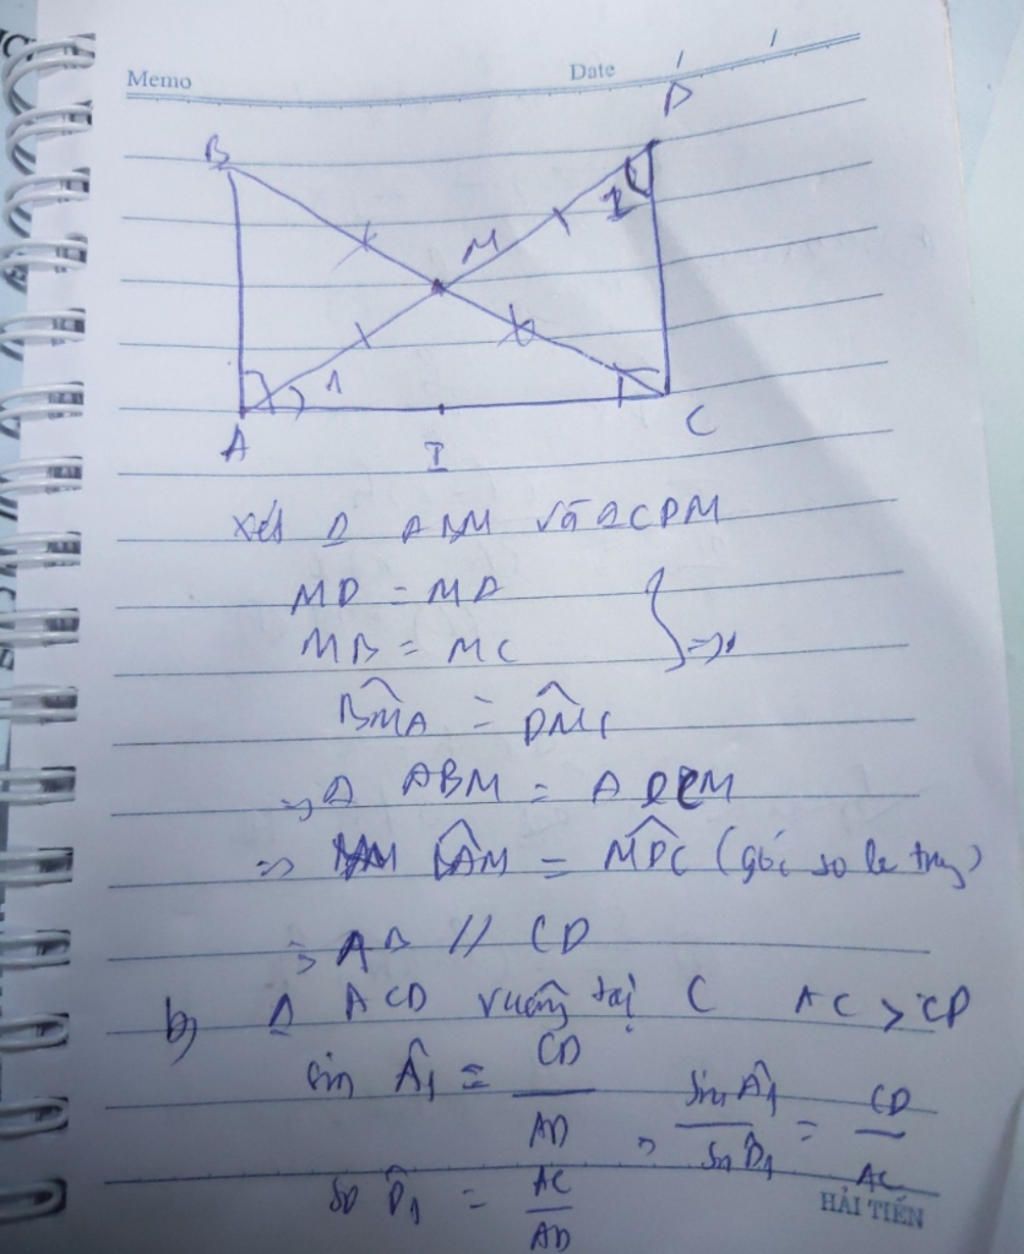 Memo Date / /
B D
M 1
1
A I C
Xét Δ ABM và Δ CDM
MD = MA
MB = MC } =>
BMA = DMC
=> Δ ABM = Δ DCM
=> BAM = MDC (góc so le trg)
=> AB // CD
b) Δ ACD vuông tại C AC > CD
sin Â1 = CD/AD => sin Â1/sin D̂1 = CD/AC
sin D̂1 = AC/AD
HẢI TIẾN